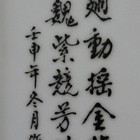 廻動搖金
魏紫競芳
壬申年冬月